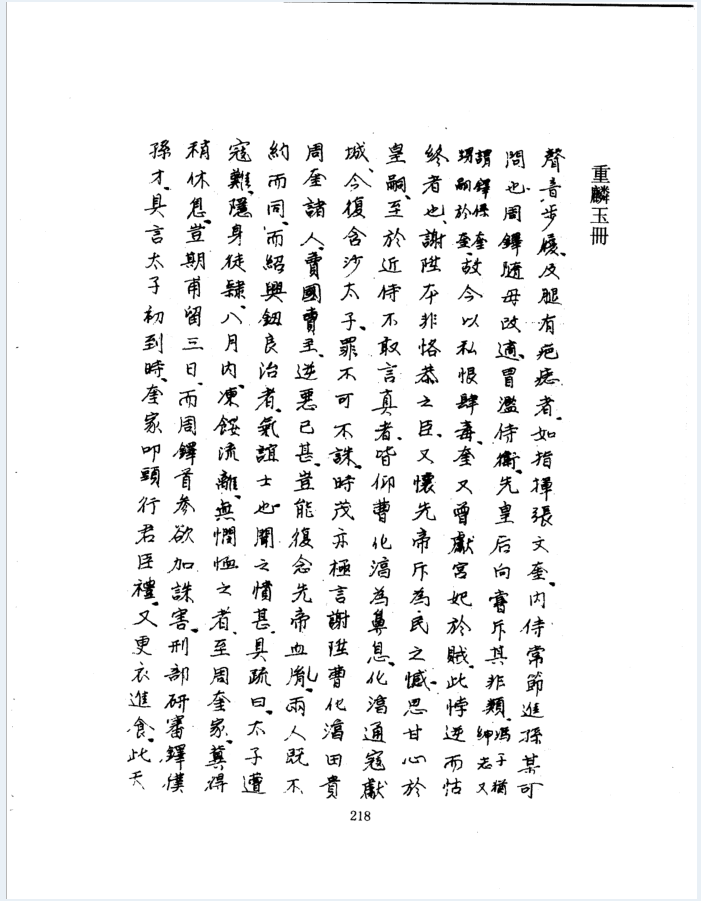 重麟玉冊
聲音步履、及腿有疤痣者、如指揮張文奎、內侍常節進孫某可
問也周鐸隨母改適、冒濫侍衛、先皇后向嘗斥其非類、馮子猶紳志又
謂鐸係奎甥嗣於奎、故今以私恨肆毒、奎又曾獻宮妃於賊、此悖逆而怙
終者也、謝陞本非恪恭之臣、又懷先帝斥為民之憾、思甘心於
皇嗣、至於近侍不敢言真者、皆仰曹化淳為鼻息、化淳通寇獻
城、今復含沙太子、罪不可不誅、時茂亦極言謝陞曹化淳田貴
周奎諸人、賣國賣主、逆惡已甚、豈能復念先帝血胤、兩人既不
約而同、而紹興鈕良治者、氣誼士也聞之憤甚、具疏曰、太子遭
寇難、隱身徒隸、八月內凍餒流離、無憫恤之者、至周奎家、冀得
稍休息、豈期甫留三日、而周鐸首參欲加誅害、刑部研審鐸僕
孫才、具言太子初到時、奎家叩頭行君臣禮、又更衣進食、此天
218